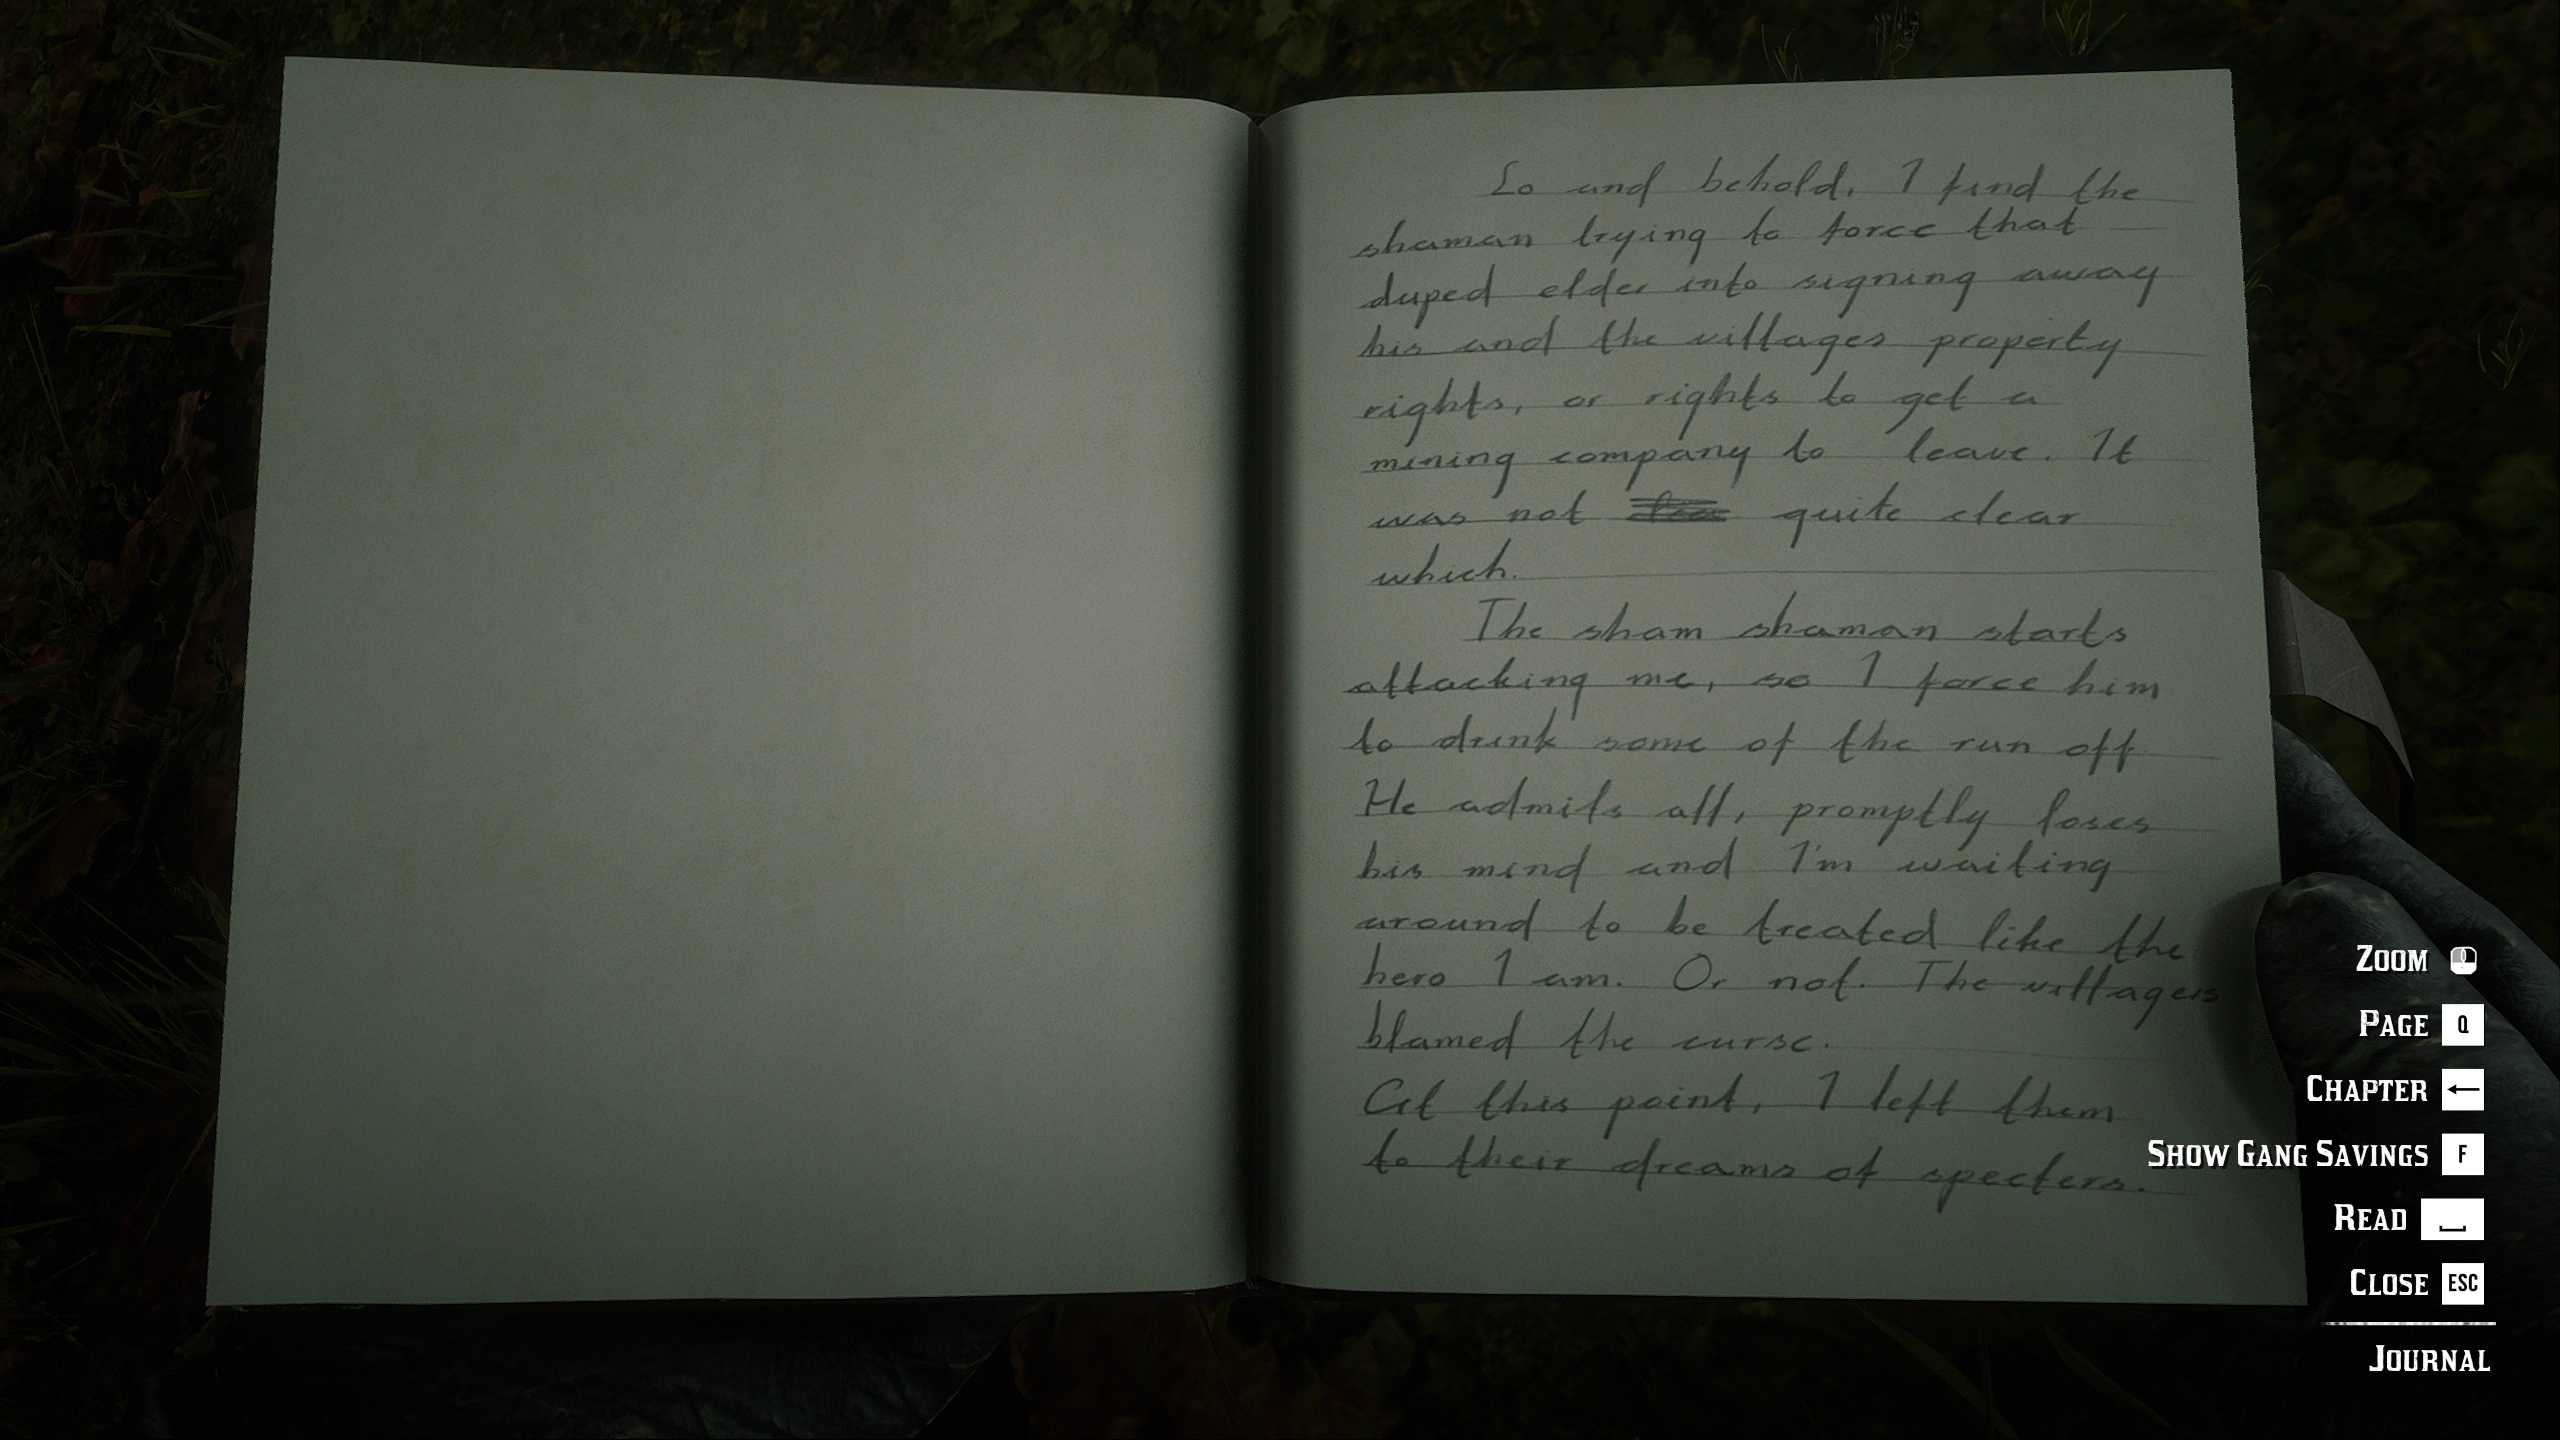 Lo and behold, I find the
shaman trying to force that
duped elder into signing away
his and the villages property
rights, or rights to get a
mining company to leave. It
was not quite clear
which.
The sham shaman starts
attacking me, so I force him
to drink some of the run off
He admits all, promptly loses
his mind and I'm waiting
around to be treated like the
hero I am. Or not. The villagers
blamed the curse.
At this point, I left them
to their dreams of specters.
ZOOM
PAGE Q
CHAPTER ←
SHOW GANG SAVINGS F
READ
CLOSE ESC
JOURNAL